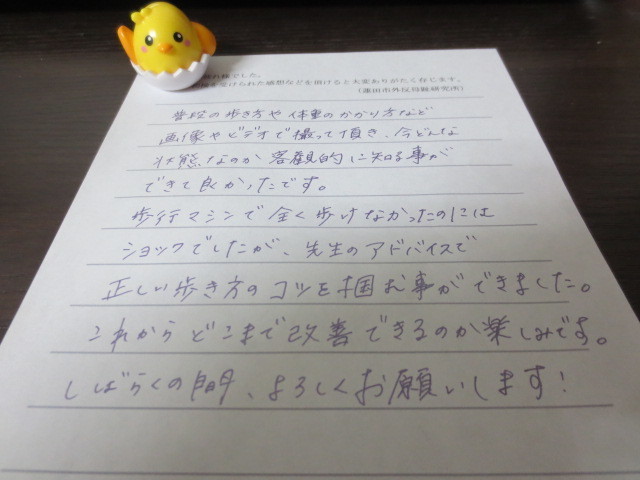 れ様でした。
を受けられた感想などを頂けると大変ありがたく存じます。
(蓮田市外反母趾研究所)
普段の歩き方や体重のかかり方など
画像やビデオで撮って頂き、今どんな
状態なのか客観的に知る事が
できて良かったです。
歩行マシンで全く歩けなかったのには
ショックでしたが、先生のアドバイスで
正しい歩き方のコツを掴む事ができました。
これからどこまで改善できるのか楽しみです。
しばらくの間、よろしくお願いします!